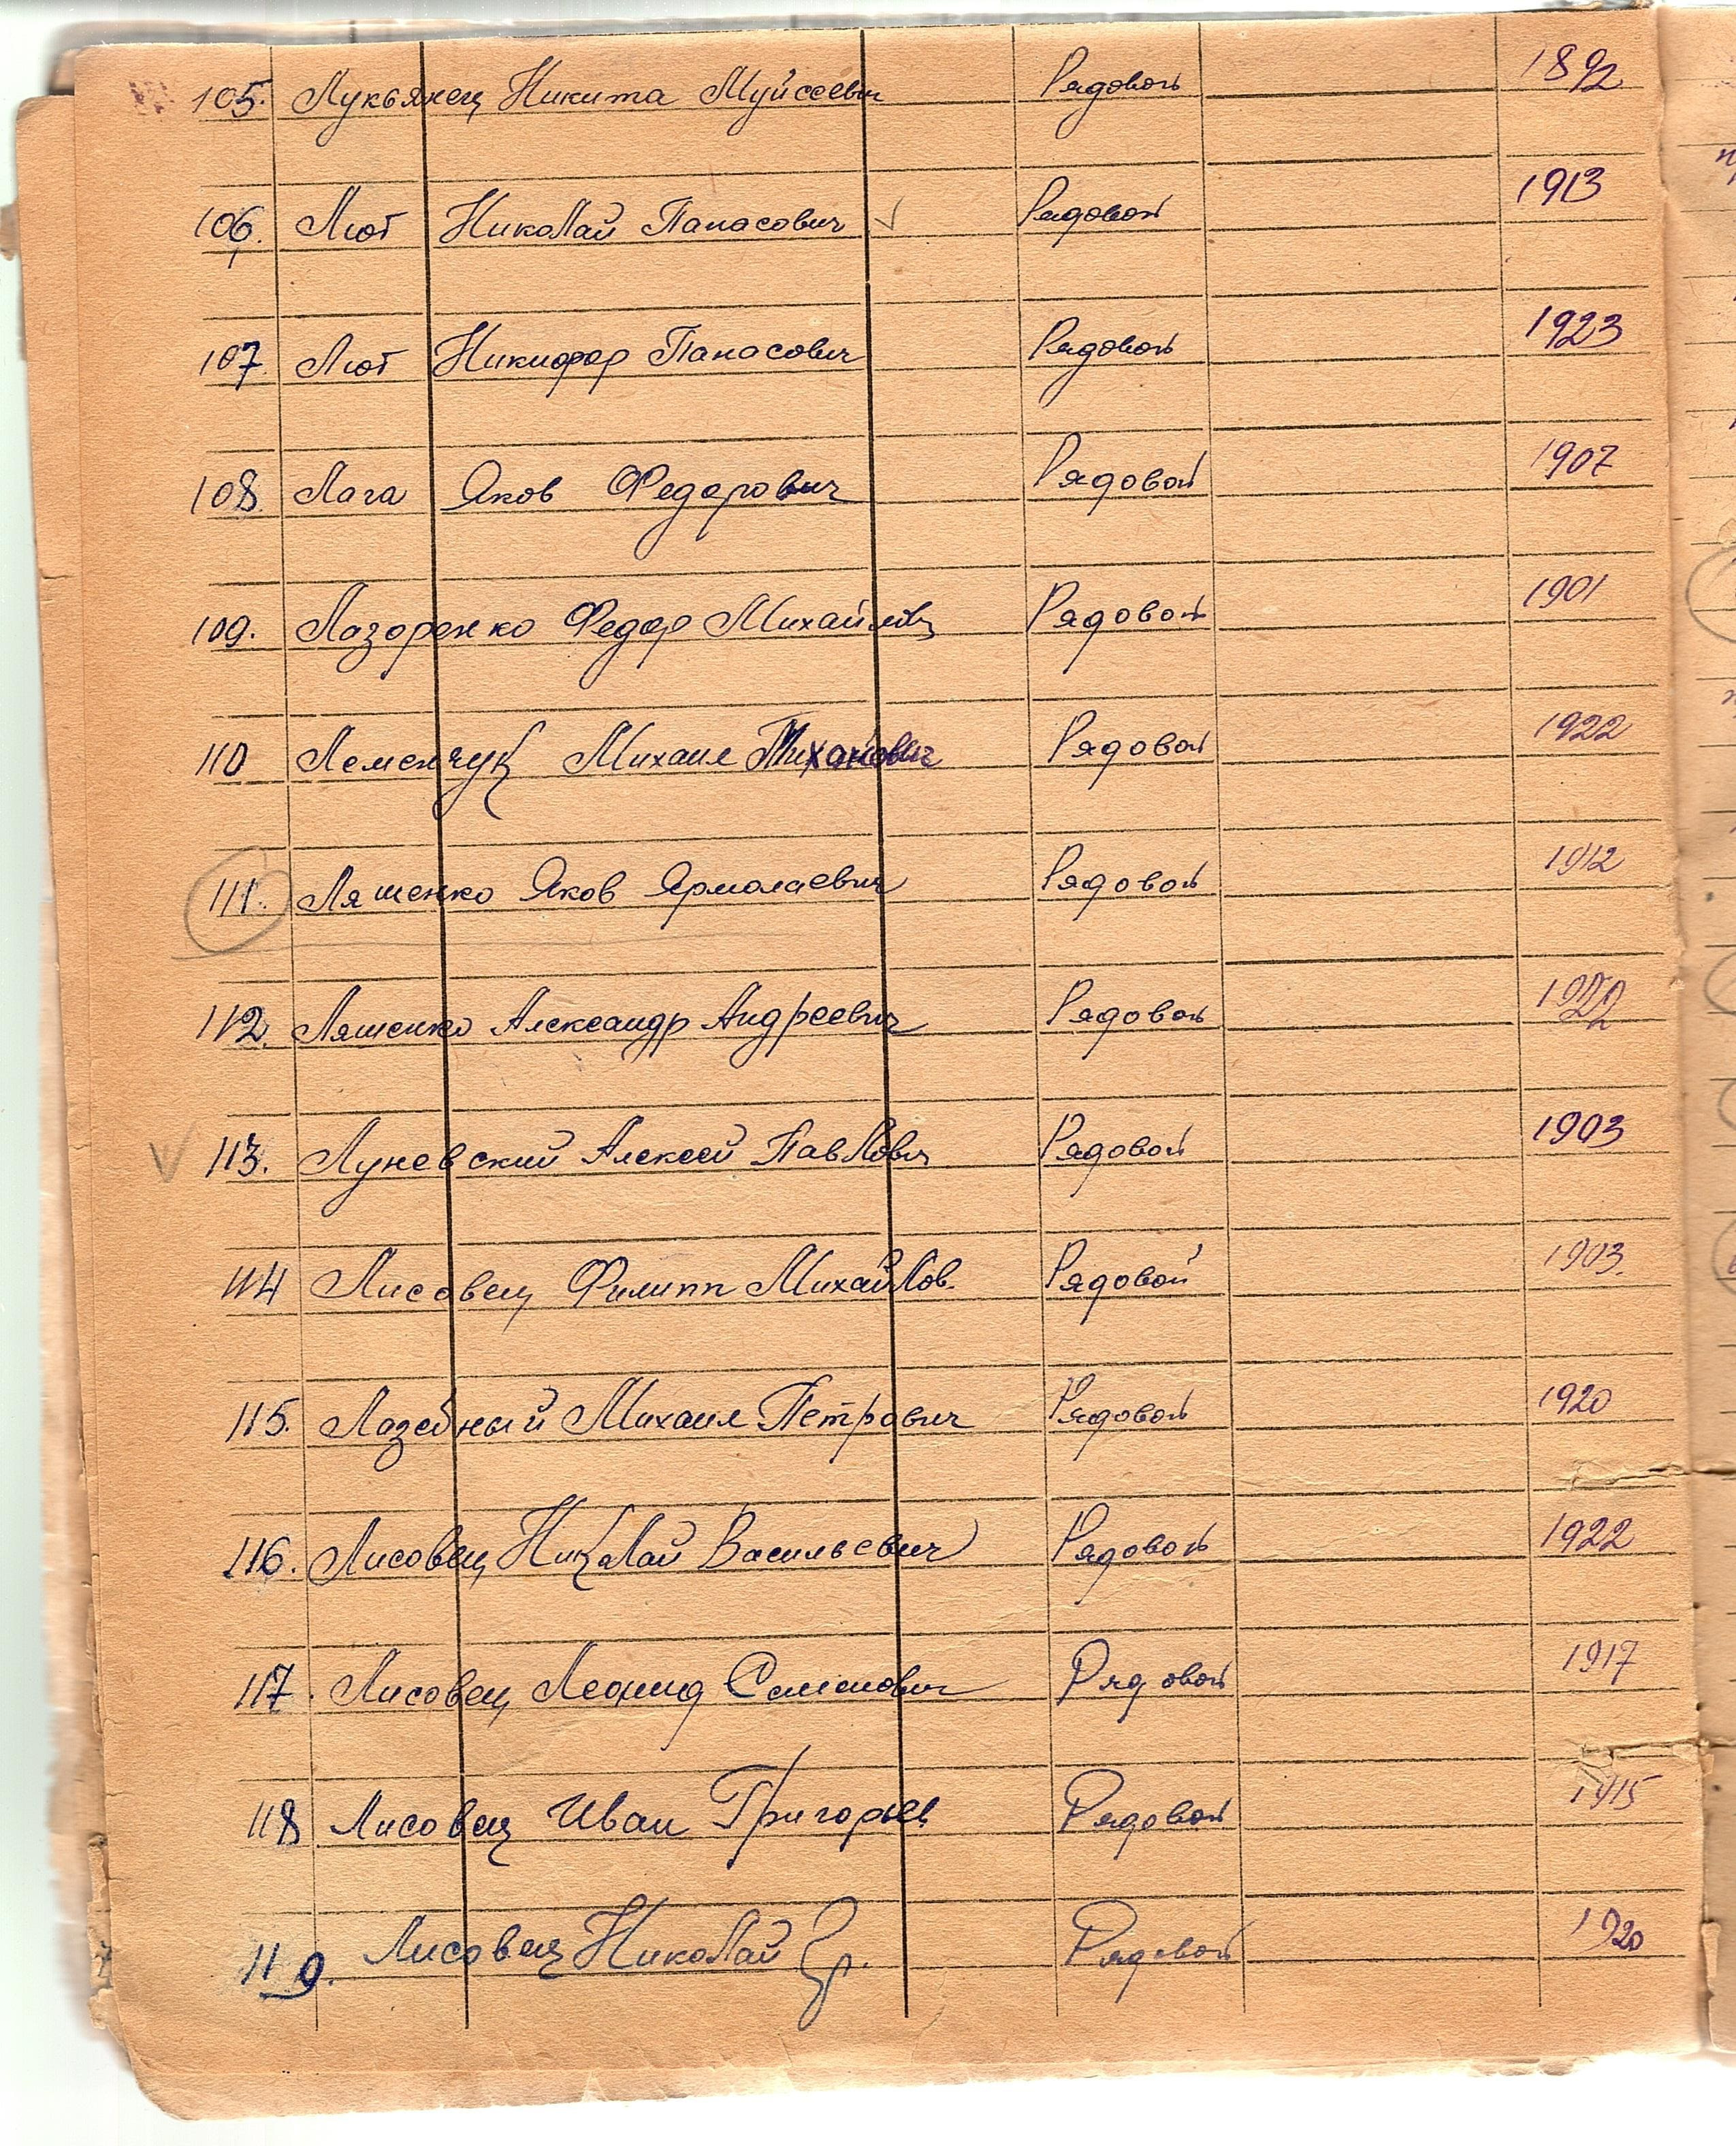 105. Лукьянец Никита Муйсеевич Рядовой 1892
106. Лют Николай Панасович Рядовой 1913
107. Лют Никифор Панасович Рядовой 1923
108. Лага Яков Федорович Рядовой 1907
109. Лазоренко Федор Рядовой 1901
110 Леменчук Михаил Рядовой 1922
111. Ляшенко Яков Ярмолаевич Рядовой 1912
112. Ляшенко Александр Андреевич Рядовой
113. Луневский Алексей Павлович Рядовой 1903
114 Лисовец Филипп Михайлов. Рядовой 1903.
115. Лазебный Михаил Петрович Рядовой 1920
116. Лисовец Николай Васильевич Рядовой 1922
117. Лисовец Леонид Семенович Рядовой 1917
118 Лисовец Иван Рядовой 1915
119. Лисовец Николай Гр. Рядовой 1920